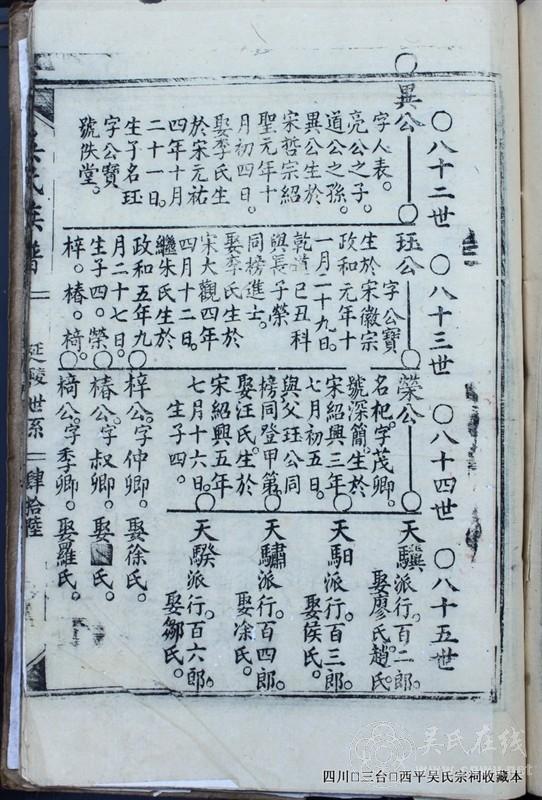 ○八十二世
○八十三世
○八十四世
○八十五世
○異公
字人表。
亮公之子。
道公之孫。
異公生於
宋哲宗紹
聖元年十
月初四日。
娶李氏生
於宋元祐
四年十月
二十一日。
生子名珏
字公寶
號帙堂。
○珏公
字公寶
生於宋徽宗
政和元年十
一月二十九日。
乾道己丑科
與長子榮
同榜進士。
娶李氏生於
宋大觀四年
四月十二日。
繼朱氏生於
政和五年九
月二十七日。
生子四。榮
梓。椿。椅。
○榮公
名杞。字茂卿。
號深簡生於
宋紹興三年
七月初五日。
與父珏公同
榜同登甲第
娶汪氏生於
宋紹興五年
七月十六日。
生子四。
○梓公。字仲卿。娶徐氏。
○椿公。字叔卿。娶 氏。
○椅公。字季卿。娶羅氏。
○天驥派行。百二郎。
娶廖氏。趙氏。
○天馹派行。百三郎。
娶侯氏。
○天驌派行。百四郎。
娶凃氏。
○天騤派行。百六郎。
娶鄒氏。
吳氏族譜
延陵世系
肆拾陸
吴氏在线
四川□三台□西平吴氏宗祠收藏本